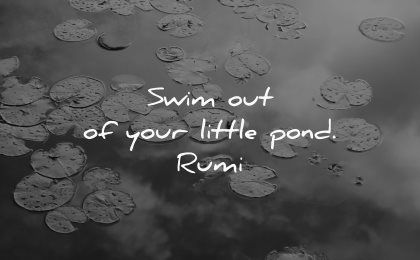 Swim out
of your little pond.
Rumi